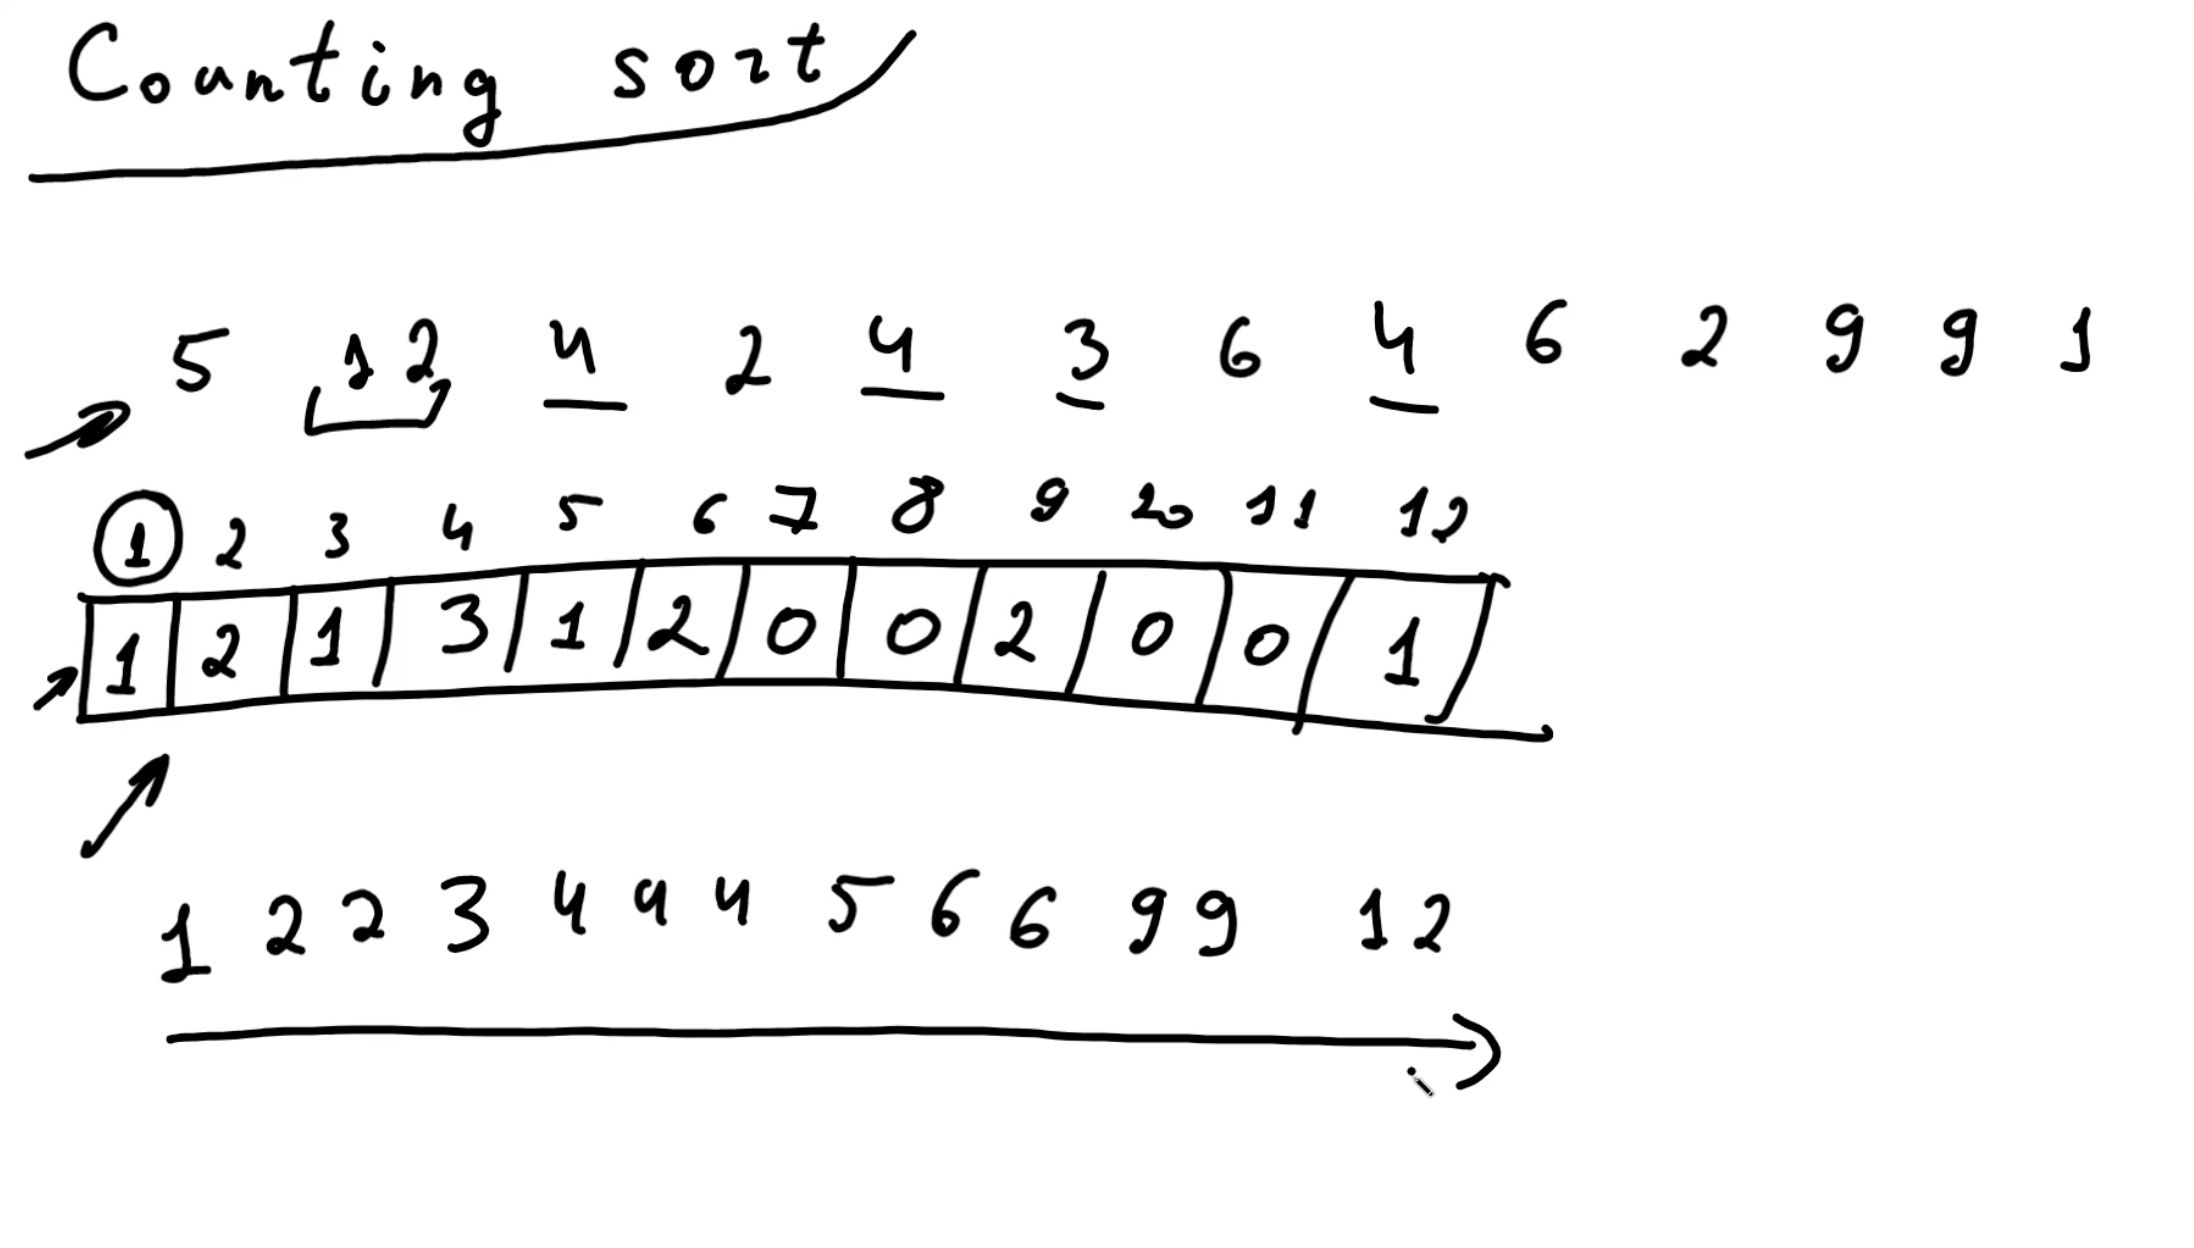 Counting sort
5 12 4 2 4 3 6 4 6 2 9 9 1
1 2 3 4 5 6 7 8 9 10 11 12
1 2 1 3 1 2 0 0 2 0 0 1
1 2 2 3 4 4 4 5 6 6 9 9 12